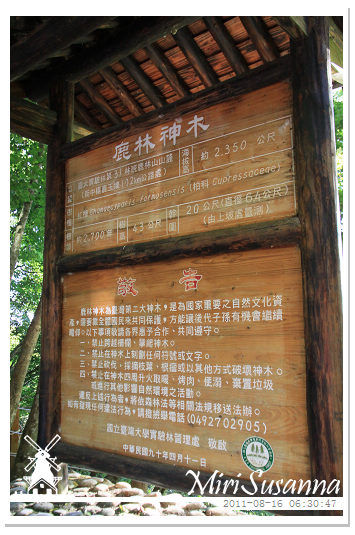 鹿林神木
海拔高
約 2,350 公尺
(新中橫公路112km公路處)
紅檜 Chamaecyparis formosensis (柏科 Cupressaceae)
約 2,700 年
樹高
43 公尺
幹圍
20 公尺(直徑6.4公尺)
(由上坡處量測)
敬告
鹿林神木為臺灣第二大神木,是為國家重要之自然文化資
產,需要靠全體國民來共同保護,方能讓後代子孫有機會繼續
瞻仰。以下事項敬請各界惠予合作、共同遵守。
一、禁止跨越柵欄、攀爬神木。
二、禁止在神木上刻劃任何符號或文字。
三、禁止砍伐、採摘枝葉、根瘤或以其他方式破壞神木。
四、禁止在神木四周升火取暖、烤肉、便溺、棄置垃圾
或進行其他影響自然環境之活動。
違反上述行為者,將依森林法等相關法規移送法辦。
如有發現任何違法行為,請撥班舉電話(0492702905)
國立臺灣大學實驗林管理處 敬啟
中華民國九十年四月十一日
MiriSusanna
2011-08-16 06:30:47